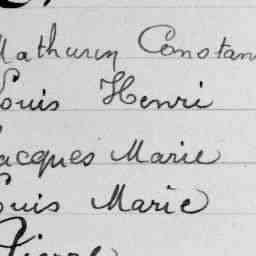 Mathurin Constan
Louis Henri
Jacques Marie
Louis Marie
Pierre